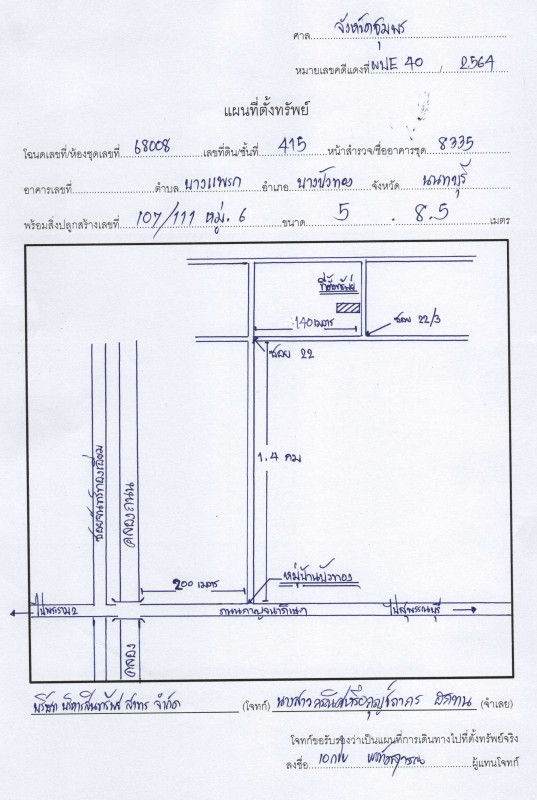 ศาล จังหวัดชุมพร
หมายเลขคดีแดงที่ ผบE 40 / 2564
แผนที่ตั้งทรัพย์
โฉนดเลขที่/ห้องชุดเลขที่ 68008 เลขที่ดิน/ชั้นที่ 415 หน้าสำรวจ/ชื่ออาคารชุด 8335
อาคารเลขที่ ตำบล บางแพรก อำเภอ บางบัวทอง จังหวัด นนทบุรี
พร้อมสิ่งปลูกสร้างเลขที่ 107/111 หมู่. 6 ขนาด 5 . 8.5 เมตร
ที่ตั้งทรัพย์
140 เมตร
ซอย 22/3
ซอย 22
1.4 กม
ซอยจันทร์ทองเอี่ยม
คลองถนน
200 เมตร
หมู่บ้านบัวทอง
ไปพระราม2
ถนนกาญจนาภิเษก
ไปสุพรรณบุรี
คลอง
บริษัท บริหารสินทรัพย์ สาทร จำกัด (โจทก์) นางสาว (จำเลย)
โจทก์ขอรับรองว่าเป็นแผนที่การเดินทางไปที่ตั้งทรัพย์จริง
ลงชื่อ ผู้แทนโจทก์